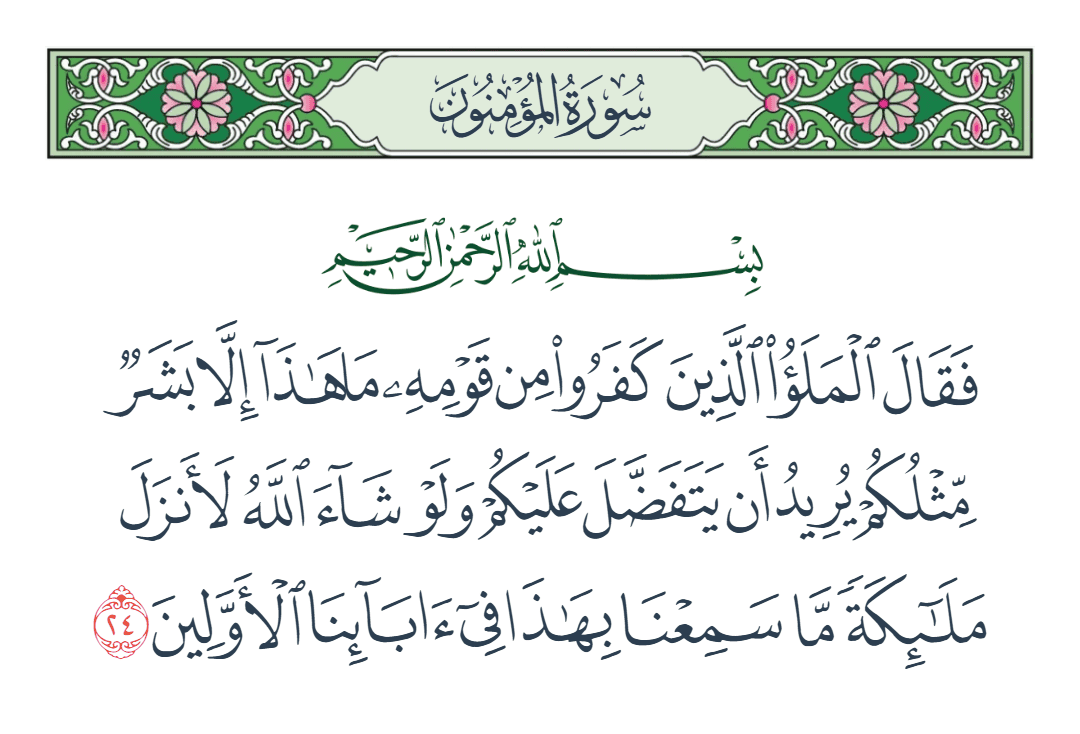 سُورَةُ الْمُؤْمِنُونَ
بِسْمِ ٱللَّهِ ٱلرَّحْمَٰنِ ٱلرَّحِيمِ
فَقَالَ ٱلْمَلَؤُا۟ ٱلَّذِينَ كَفَرُوا۟ مِن قَوْمِهِۦ مَا هَـٰذَآ إِلَّا بَشَرٌ
مِّثْلُكُمْ يُرِيدُ أَن يَتَفَضَّلَ عَلَيْكُمْ وَلَوْ شَآءَ ٱللَّهُ لَأَنزَلَ
مَلَـٰٓئِكَةً مَّا سَمِعْنَا بِهَـٰذَا فِىٓ ءَابَآئِنَا ٱلْأَوَّلِينَ ٢٤